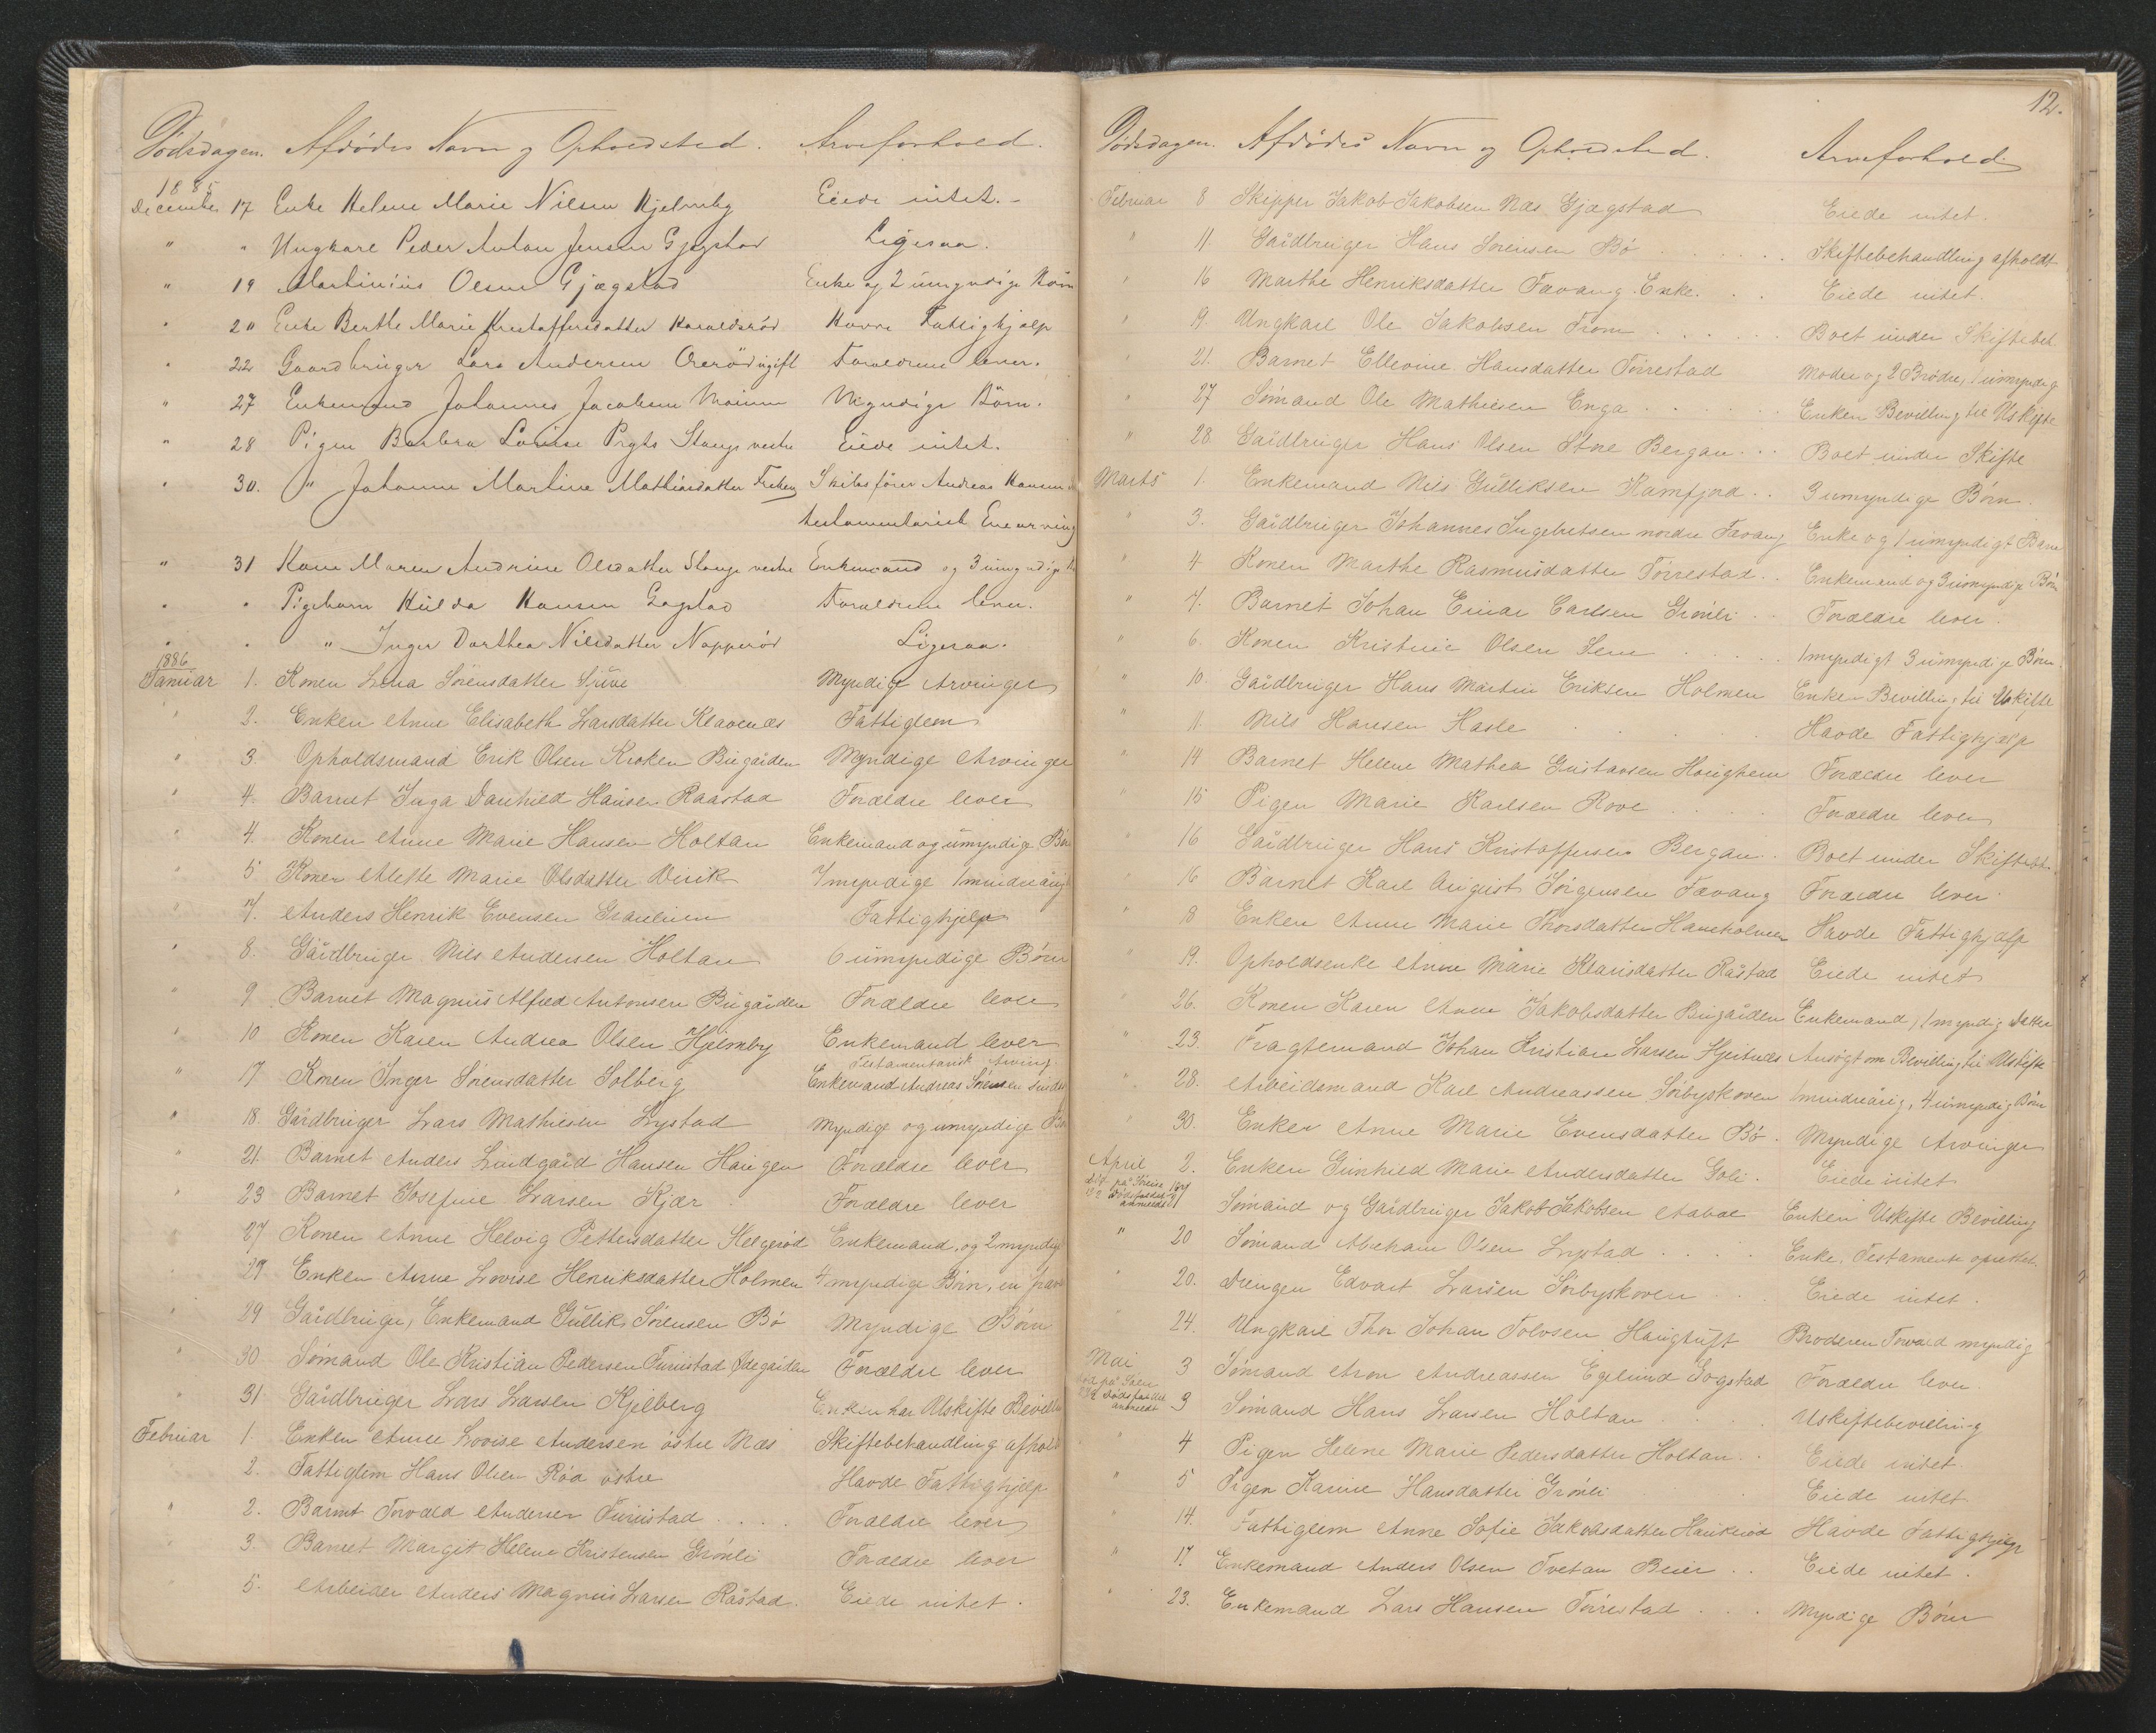 Dødsdagen. Afdødes Navn og Opholdsted. Arveforhold.
1885
December 17 Enke Helene Marie Nilsen Hjelmby Eiede intet. -
" " Ungkarl Peder Anton Jensen Gjegstad Ligesaa.
" 19 Martinius Olsen Gjægstad Enke og 2 umyndige Børn
" 20 Enke Berthe Marie Kristoffersdatter Haraldsrød Havde Fattighjelp
" 22 Gaardbruger Lars Andersen ugift Foreldrene lever.
" 27 Enkemand Johannes Jacobsen Myndige Børn.
" 28 Pigen Barbra Lovise Stange vestre Eiede intet.
" 30. " Johanne Martine Mathiasdatter Skibsfører Andreas Hansen
testamentarisk Enearving
" 31 Kone Maren Andrine Olsdatter Stange vestre Enkemand og 3 umyndige
" " Pigebarn Hulda Hansen Gogstad Foreldrene lever.
" " " Inger Dorthea Nilsdatter Napperød Ligesaa.
1886
Januar 1. Konen Lena Sørensdatter Myndige Arvinger
" 2. Enken Anne Elisabeth Larsdatter Klavenæs Fattiglem
" 3. Opholdsmand Erik Olsen Kroken Bugården Myndige Arvinger
" 4. Barnet Inga Danhild Hansen Raastad Forældre lever
" 4. Konen Anne Marie Hansen Holtan Enkemand og umyndige Børn
" 5 Konen Alette Marie Olsdatter Virik 7 myndige 1 mindreårig
" 7. Anders Henrik Evensen Granlien Fattighjelp
" 8. Gårdbruger Nils Andersen Holtan 6 umyndige Børn
" 9 Barnet Magnus Alfred Antonsen Bugården Forældre lever
" 10 Konen Karen Andrea Olsen Hjelmby Enkemand lever
Testamentarisk Arving
" 17 Konen Inger Sørensdatter Solberg Enkemand Andreas Sørensen
" 18. Gårdbruger Lars Mathiesen Lystad Myndige og umyndige Børn
" 21. Barnet Anders Lindgård Hansen Haugen Forældre lever
" 23 Barnet Josefine Larsen Kjær Forældre lever
27 Konen Anne Helvig Pettersdatter Helgerød Enkemand, og 2 myndige
" 29 Enken Anne Lovise Henriksdatter Holmen 4 myndige Børn, en
" 29 Gårdbruger, Enkemand Gullik Sørensen Bø Myndige Børn
" 30 Sømand Ole Kristian Pedersen Furustad Ødegården Forældre lever
" 31 Gårdbruger Lars Larsen Kjelberg Enken har Uskifte Bevilling
Februar 1. Enken Anne Lovise Andersen østre Næs Skiftebehandling afholdt
2. Fattiglem Hans Olsen Røa østre Havde Fattighjelp
" 2. Barnet Torvald Andersen Furustad . . . . Forældre lever
" 3. Barnet Margit Helene Kristensen Grønli Forældre lever
" 5. Arbeider Anders Magnus Larsen Råstad. Eiede intet.
12.
Dødsdagen. Afdødes Navn og Opholdsted. Arveforhold.
Februar 8 Skipper Jakob Jakobsen Næs Gjægstad Eiede intet.
" 11. Gårdbruger Hans Sørensen Bø . . . . . Skiftebehandling afholdt
" 16 Marthe Henriksdatter Fævang. Enke. . . Eiede intet.
" 19. Ungkarl Ole Jakobsen Trom . . . . Boet under Skiftebeh.
" 21. Barnet Ellevine Hansdatter Tørrestad Moder og 2 Brødre, 1 umyndig
" 27 Sømand Ole Mathiesen Enga . . . . Enken Bevilling til Uskifte
" 28. Gårdbruger Hans Olsen Store Bergan . . . Boet under Skifte
Marts 1. Enkemand Nils Gulliksen Kamfjord . . 3 umyndige Børn.
" 3. Gårdbruger Johannes Ingebretsen nordre Fævang Enke og 1 umyndigt Barn
" 4 Konen Marthe Rasmusdatter Tørrestad . . Enkemand og 3 umyndige Børn
" 7. Barnet Johan Einar Carlsen Grønli . . Forældre lever.
" 6. Konen Kristine Olsen Sem . . . . 1 myndigt 3 umyndige Børn.
" 10. Gårdbruger Hans Martin Eriksen Holmen Enken Bevilling til Uskifte
" 11. Nils Hansen Hasle . . . . Havde Fattighjælp
" 14 Barnet Helene Mathea Gustavsen Forældre lever
" 15 Pigen Marie Karlsen Rove . . . Forældre lever
" 16 Gårdbruger Hans Kristoffersen Bergan . . Boet under Skiftebeh.
" 16 Barnet Karl August Jørgensen Fævang Forældre lever.
" 18 Enken Anne Marie Thorsdatter Haneholmen Havde Fattighjælp
" 19. Opholdsenke Anne Marie Råstad Eiede intet
26. Konen Karen Anne Jakobsdatter Bugården Enkemand, 1 myndig Datter
" 23. Fragtemand Johan Kristian Larsen Hjertnæs Ansøgt om Bevilling til Uskifte
" 28. Arbeidsmand Karl Andreassen Sørbyskoven 1 mindreårig, 4 umyndig Børn
" 30. Enken Anne Marie Evensdatter Bø . Myndige Arvinger
April 2. Enken Gunhild Marie Andersdatter Soli . Eiede intet
Død på Søreise Dødsfaldet anmeldt
Sømand og Gårdbruger Jakob Jakobsen Enken Uskifte Bevilling
" 20 Sømand Abraham Olsen Lystad . . . . Enke, Testamente oprettet.
" 20. Drengen Edvart Larsen Sørbyskoven . . . Eiede intet.
" 24. Ungkarl Thor Johan Tolvsen Haugtuft Broderen Torvald myndig
Mai 3 Sømand Aron Andreassen Egelund Gogstad Forældre lever.
død på Søen Dødsfaldet anmeldt
3 Sømand Hans Larsen Holtan . . . Uskiftebevilling
" 4 Pigen Helene Marie Pedersdatter Holtan . . Eiede intet.
" 5 Pigen Karine Hansdatter Grønli Eiede intet.
" 14. Fattiglem Anne Sofie Jakobsdatter Haukerød Havde Fattighjelp
" 17 Enkemand Anders Olsen Tvetan Beier . . Eiede intet.
" 23. Enkemand Lars Hansen Tørrestad . . . Myndige Børn